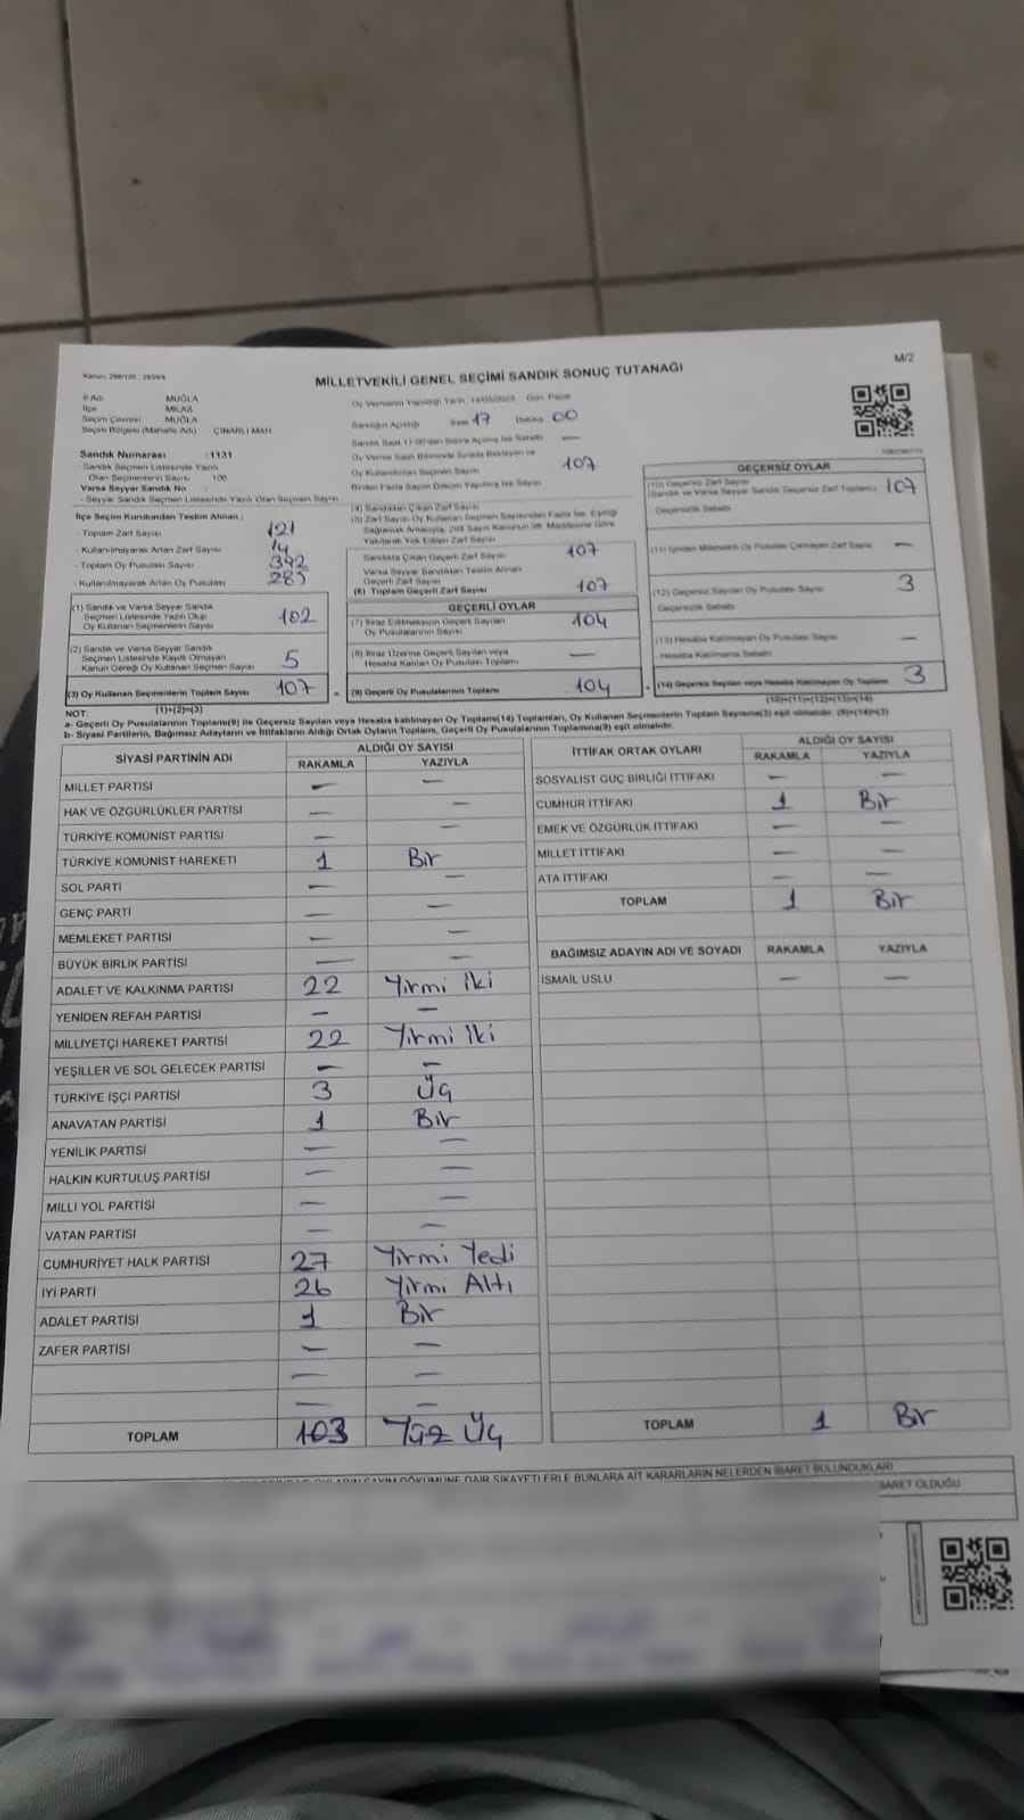 M/2
MİLLETVEKİLİ GENEL SEÇİMİ SANDIK SONUÇ TUTANAĞI
İl Adı MUĞLA
İlçe MİLAS
Seçim Çevresi MUĞLA
Seçim Bölgesi (Mahalle Adı) ÇINARLI MAH.
Sandık Numarası :1131
Sandık Seçmen Listesinde Yazılı
Olan Seçmenlerin Sayısı 106
Varsa Seyyar Sandık No
- Seyyar Sandık Seçmen Listesinde Yazılı Olan Seçmen Sayısı
İlçe Seçim Kurulundan Teslim Alınan;
- Toplam Zarf Sayısı 121
- Kullanılmayarak Artan Zarf Sayısı 14
- Toplam Oy Pusulası Sayısı 392
- Kullanılmayarak Artan Oy Pusulası 285
(1) Sandık ve Varsa Seyyar Sandık
Seçmen Listesinde Yazılı Olup
Oy Kullanan Seçmenlerin Sayısı 102
(2) Sandık ve Varsa Seyyar Sandık
Seçmen Listesinde Kayıtlı Olmayan
Kanun Gereği Oy Kullanan Seçmen Sayısı 5
(3) Oy Kullanan Seçmenlerin Toplam Sayısı 107
(1)+(2)=(3)
Sandığın Açıldığı Saat 17 Dakika 00
Oy Kullandırılan Seçmen Sayısı 107
(4) Sandıktan Çıkan Zarf Sayısı
Sandıkta Çıkan Geçerli Zarf Sayısı 107
Varsa Seyyar Sandıktan Teslim Alınan
Geçerli Zarf Sayısı
(6) Toplam Geçerli Zarf Sayısı 107
GEÇERLİ OYLAR
(7) İtiraz Edilmeksizin Geçerli Sayılan
Oy Pusulalarının Sayısı 104
(8) İtiraz Üzerine Geçerli Sayılan veya
Hesaba Katılan Oy Pusulası Toplamı —
(9) Geçerli Oy Pusulalarının Toplamı 104
GEÇERSİZ OYLAR
(10) Geçersiz Zarf Sayısı
(Sandık ve Varsa Seyyar Sandık Geçersiz Zarf Toplamı) 107
Geçersizlik Sebebi
(12) Geçersiz Sayılan Oy Pusulası Sayısı 3
Geçersizlik Sebebi
(13) Hesaba Katılmayan Oy Pusulası Sayısı —
Hesaba Katılmama Sebebi
(14) Geçersiz Sayılan veya Hesaba Katılmayan Oy Toplamı 3
(10)+(11)+(12)+(13)=(14)
NOT:
a- Geçerli Oy Pusulalarının Toplamı(9) ile Geçersiz Sayılan veya Hesaba katılmayan Oy Toplamı(14) Toplamları, Oy Kullanan Seçmenlerin Toplam Sayısına(3) eşit olmalıdır. (9)+(14)=(3)
b- Siyasi Partilerin, Bağımsız Adayların ve İttifakların Aldığı Ortak Oyların Toplamı, Geçerli Oy Pusulalarının Toplamına(9) eşit olmalıdır.
SİYASİ PARTİNİN ADI ALDIĞI OY SAYISI
RAKAMLA YAZIYLA
MİLLET PARTİSİ — —
HAK VE ÖZGÜRLÜKLER PARTİSİ — —
TÜRKİYE KOMÜNİST PARTİSİ — —
TÜRKİYE KOMÜNİST HAREKETİ 1 Bir
SOL PARTİ — —
GENÇ PARTİ — —
MEMLEKET PARTİSİ — —
BÜYÜK BİRLİK PARTİSİ — —
ADALET VE KALKINMA PARTİSİ 22 Yirmi iki
YENİDEN REFAH PARTİSİ — —
MİLLİYETÇİ HAREKET PARTİSİ 22 Yirmi İki
YEŞİLLER VE SOL GELECEK PARTİSİ — —
TÜRKİYE İŞÇİ PARTİSİ 3 Üç
ANAVATAN PARTİSİ 1 Bir
YENİLİK PARTİSİ — —
HALKIN KURTULUŞ PARTİSİ — —
MİLLİ YOL PARTİSİ — —
VATAN PARTİSİ — —
CUMHURİYET HALK PARTİSİ 27 Yirmi Yedi
İYİ PARTİ 26 Yirmi Altı
ADALET PARTİSİ 1 Bir
ZAFER PARTİSİ — —
— —
— —
TOPLAM 103 Yüz Üç
İTTİFAK ORTAK OYLARI ALDIĞI OY SAYISI
RAKAMLA YAZIYLA
SOSYALİST GÜÇ BİRLİĞİ İTTİFAKI — —
CUMHUR İTTİFAKI 1 Bir
EMEK VE ÖZGÜRLÜK İTTİFAKI — —
MİLLET İTTİFAKI — —
ATA İTTİFAKI — —
TOPLAM 1 Bir
BAĞIMSIZ ADAYIN ADI VE SOYADI RAKAMLA YAZIYLA
İSMAİL USLU — —
TOPLAM 1 Bir
DÖKÜMÜNE DAİR ŞİKAYETLERLE BUNLARA AİT KARARLARIN NELERDEN İBARET BULUNDUKLARI
İBARET OLDUĞU